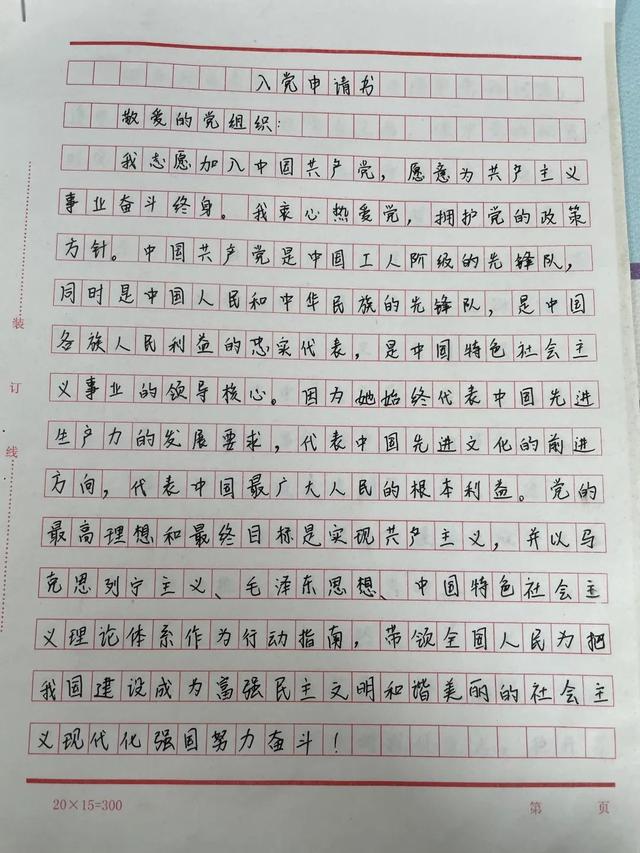 入党申请书
敬爱的党组织：
我志愿加入中国共产党，愿意为共产主义
事业奋斗终身。我衷心热爱党，拥护党的政策
方针。中国共产党是中国工人阶级的先锋队，
同时是中国人民和中华民族的先锋队，是中国
各族人民利益的忠实代表，是中国特色社会主
义事业的领导核心。因为她始终代表中国先进
生产力的发展要求，代表中国先进文化的前进
方向，代表中国最广大人民的根本利益。党的
最高理想和最终目标是实现共产主义，并以马
克思列宁主义、毛泽东思想、中国特色社会主
义理论体系作为行动指南，带领全国人民为把
我国建设成为富强民主文明和谐美丽的社会主
义现代化强国努力奋斗！
装
订
线
20×15=300
第 页